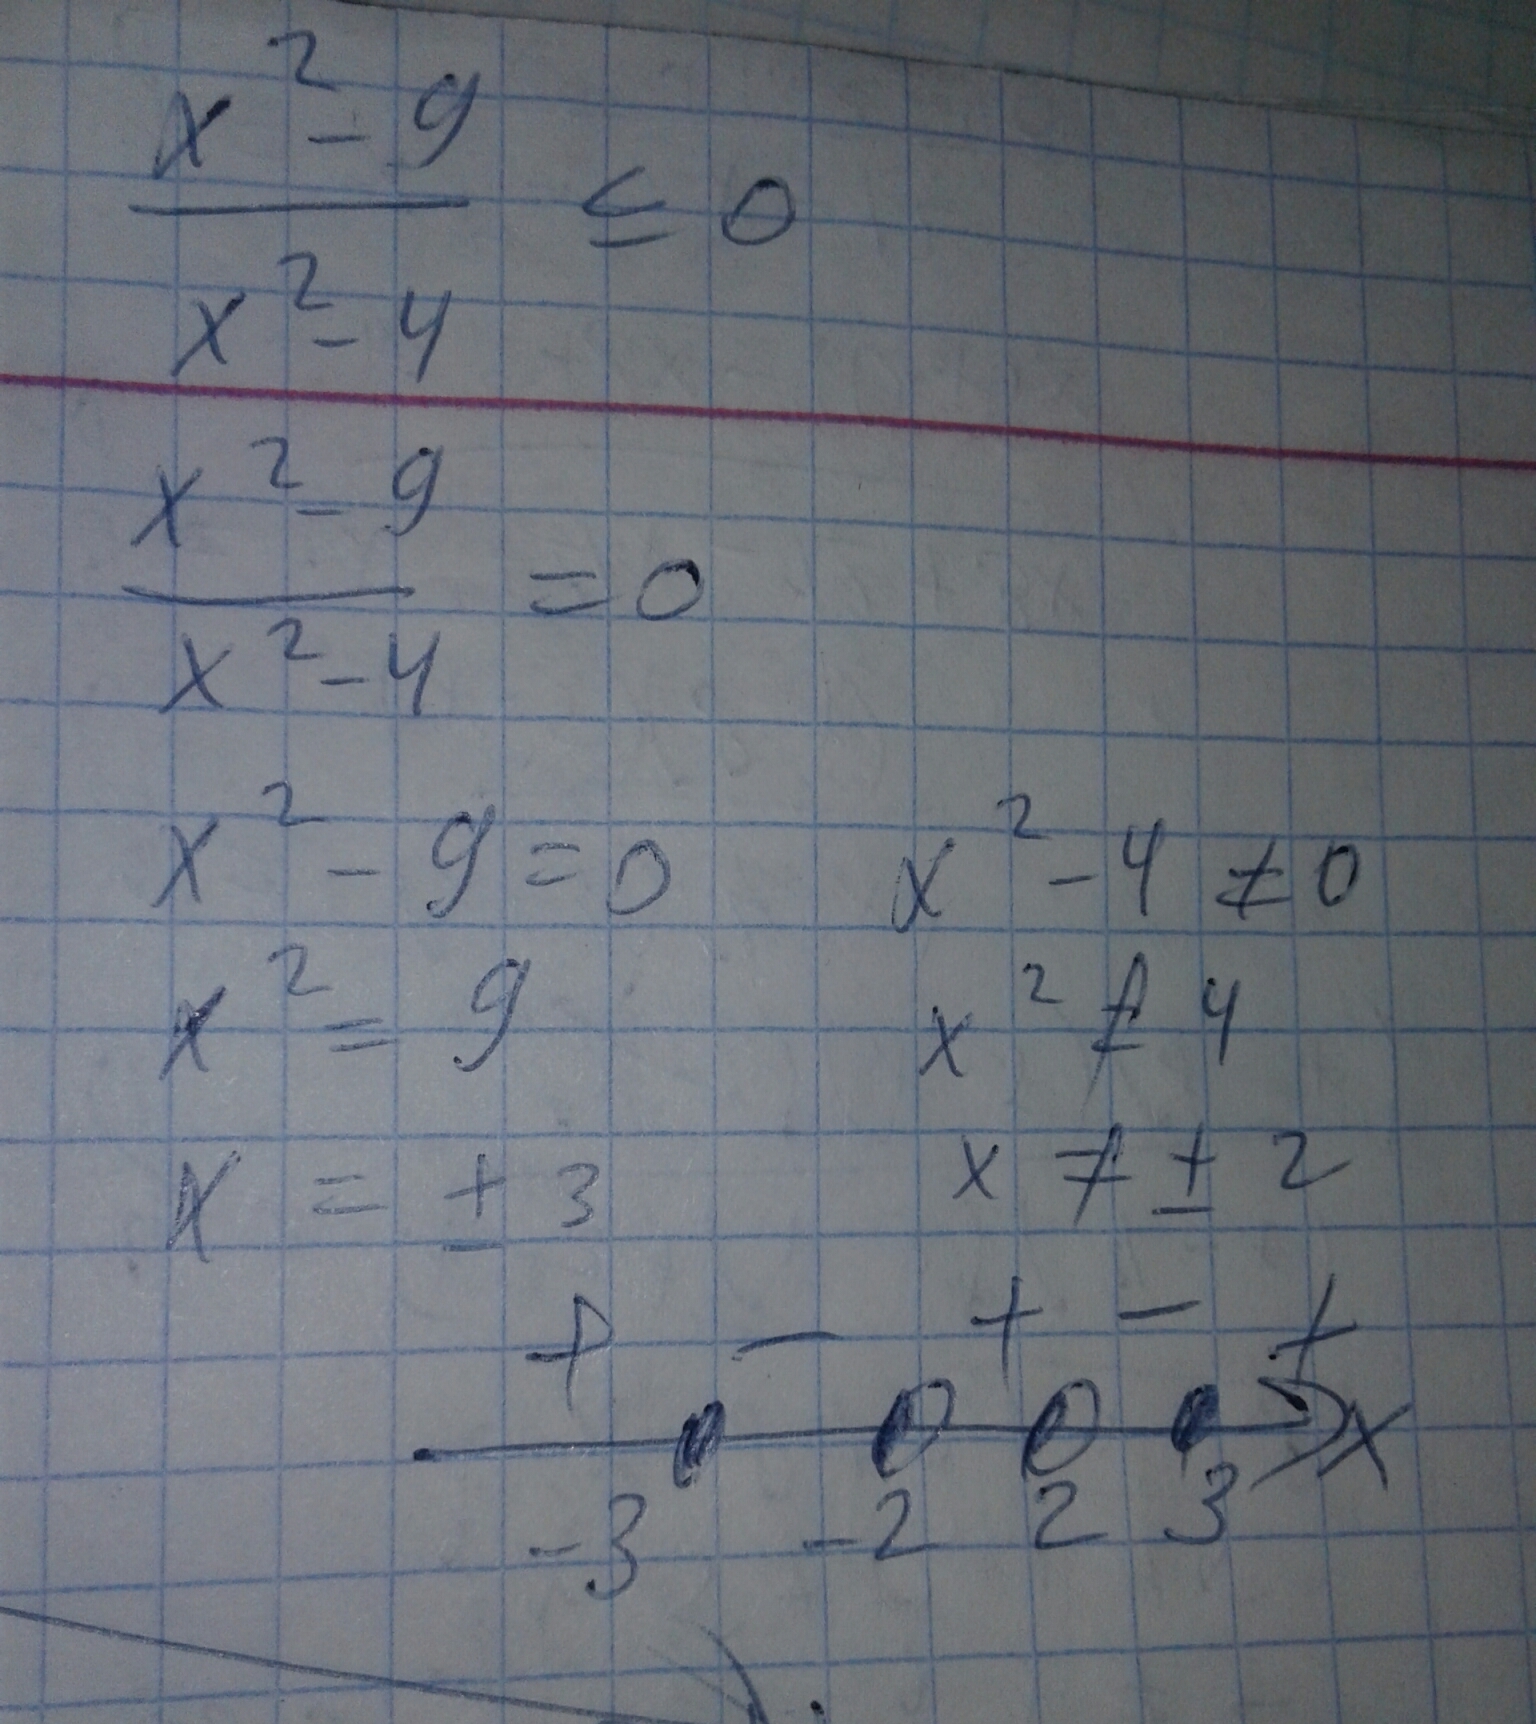 x² - 9
≤ 0
x² - 4
x² - 9
= 0
x² - 4
x² - 9 = 0 x² - 4 ≠ 0
x² = 9 x² ≠ 4
x = ± 3 x ≠ ± 2
+ - + - +
x
-3 -2 2 3